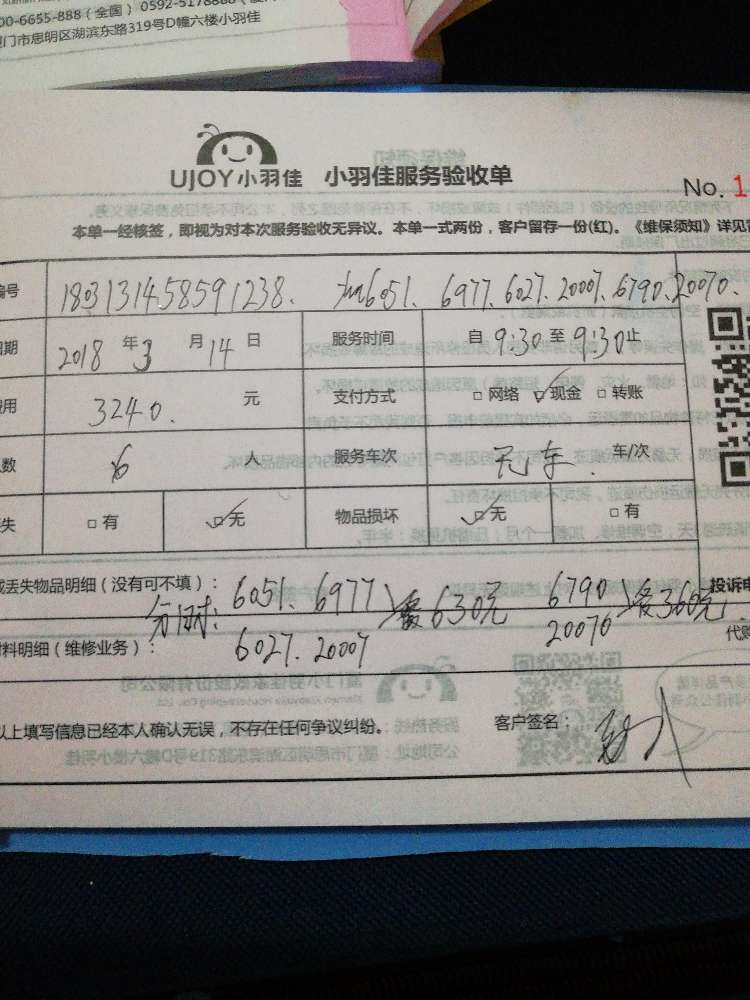 00-6655-888（全国）0592-5178888
门市思明区湖滨东路319号D幢六楼小羽佳
UJOY小羽佳 小羽佳服务验收单
No. 1
本单一经核签，即视为对本次服务验收无异议。本单一式两份，客户留存一份(红)。《维保须知》详见
编号 1803131458591238. 6051. 6977. 6027. 20007. 6790. 20070.
日期 2018 年 3 月 14 日 服务时间 自 9:30 至 9:30 止
费用 3240. 元 支付方式 □ 网络 ☑ 现金 □ 转账
人数 6 人 服务车次 无车. 车/次
丢失 □ 有 ☑ 无 物品损坏 ☑ 无 □ 有
或丢失物品明细（没有可不填）： 6051. 6977 6790 投诉电
分成: 各630元 各360元.
材料明细（维修业务）： 6027. 20007 20070 代购
以上填写信息已经本人确认无误，不存在任何争议纠纷。 客户签名：